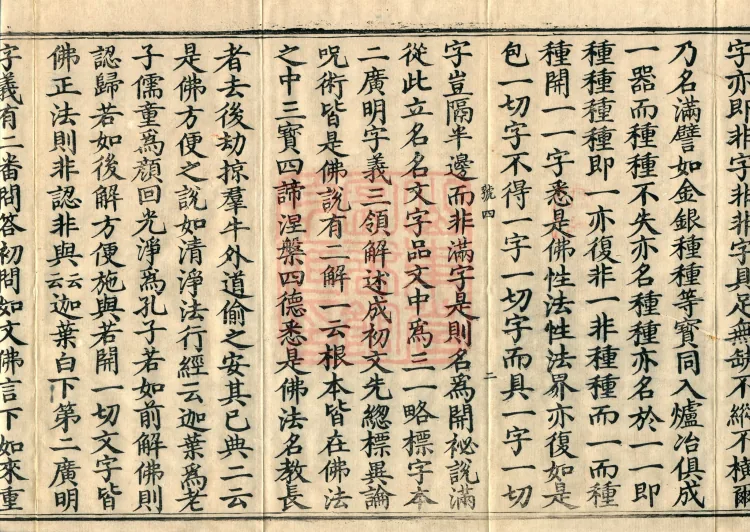 字亦即非字非非字具足無缺不縱不橫爾
乃名滿譬如金銀種種等寶同入爐冶俱成
一器而種種不失亦名種種亦名於一一即
種種種種即一亦復非一非種種而一而種
種開一一字悉是佛性法性法界亦復如是
包一切字不得一字一切字而具一字一切
號四
二
字豈隔半邊而非滿字是則名為開祕說滿
從此立名名文字品文中為三一略標字本
二廣明字義三領解述成初文先總標異論
呪術皆是佛說有二解一云根本皆在佛法
之中三寶四諦涅槃四德悉是佛法名教長
者去後劫掠羣牛外道偷之安其已典二云
是佛方便之說如清淨法行經云迦葉為老
子儒童為顏回光淨為孔子若如前解佛則
認歸若如後解方便施與若開一切文字皆
佛正法則非認非與云云迦葉白下第二廣明
字義有二番問答初問如文佛言下如來重